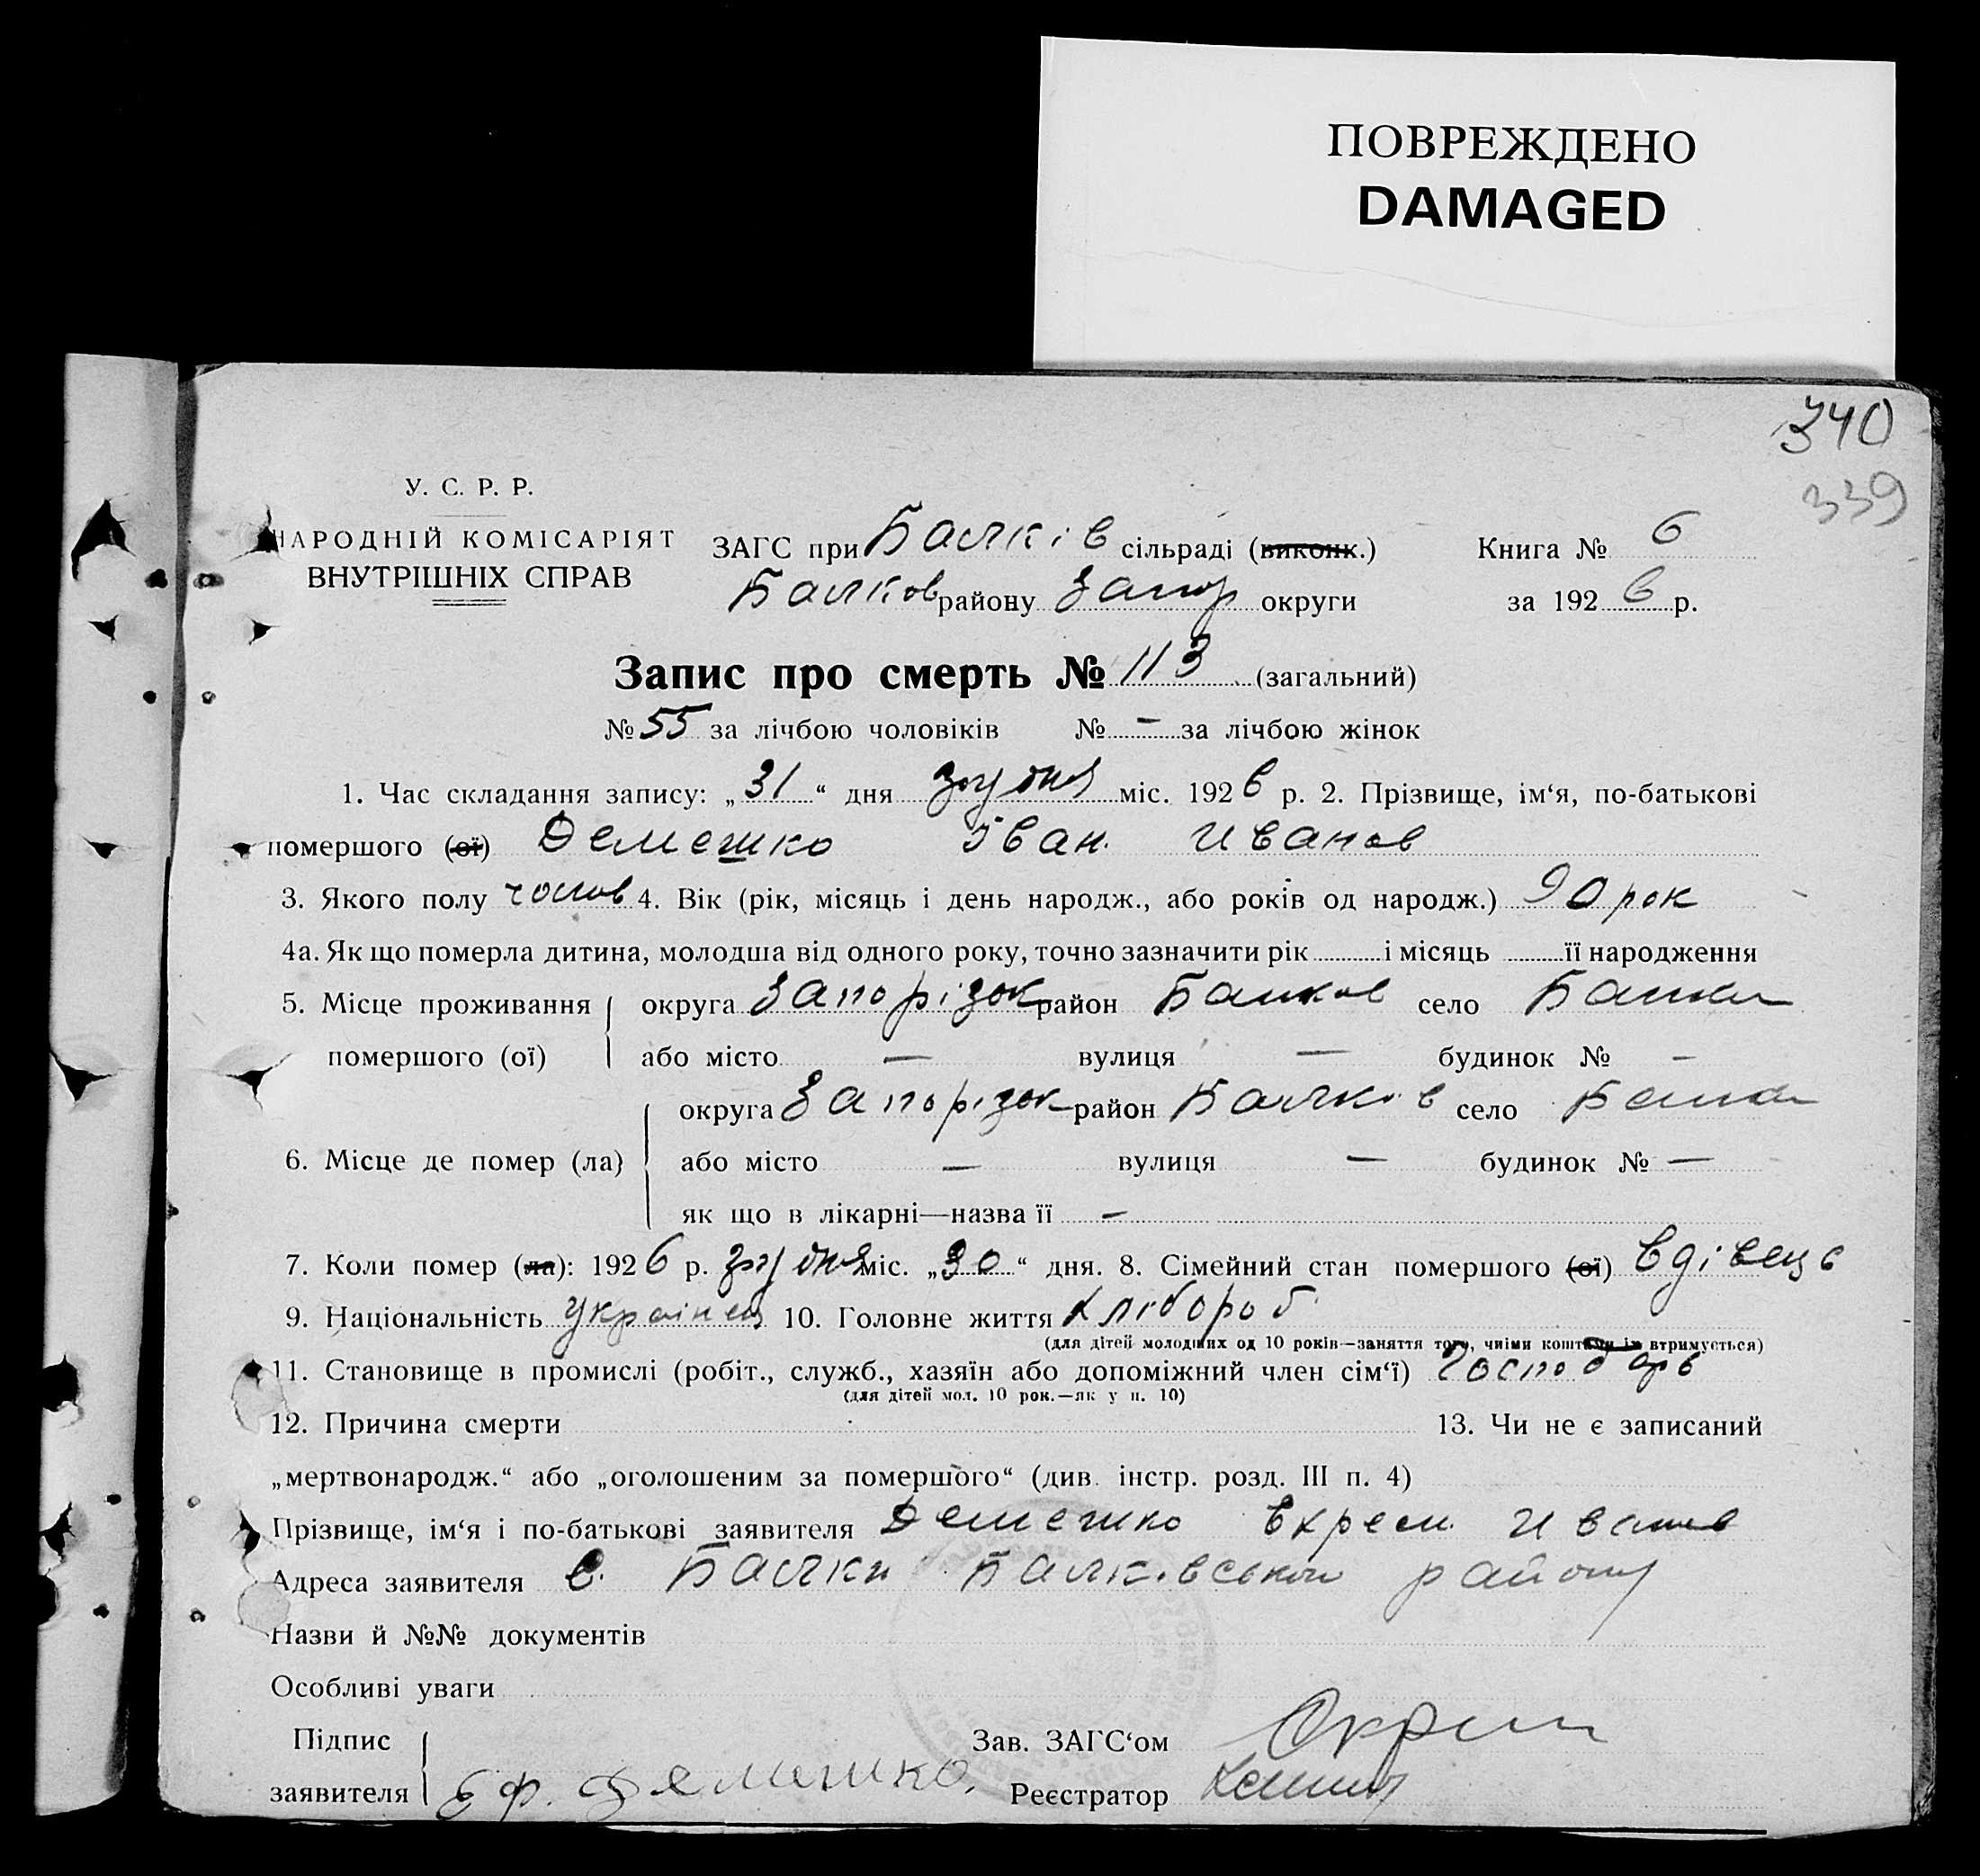 ПОВРЕЖДЕНО
DAMAGED
340
339
У. С. Р. Р.
НАРОДНІЙ КОМІСАРІЯТ
ВНУТРІШНІХ СПРАВ
ЗАГС при Балків сільраді (виконк.) Книга № 6
Балков району Запор округи за 1926 р.
Запис про смерть № 113 (загальний)
№ 55 за лічбою чоловіків № — за лічбою жінок
1. Час складання запису: „31“ дня грудня міс. 1926 р. 2. Прізвище, ім‘я, по-батькові
помершого (ої) Демешко Іван Иванов
3. Якого полу чолов 4. Вік (рік, місяць і день народж., або років од народж.) 90 рок
4а. Як що померла дитина, молодша від одного року, точно зазначити рік і місяць її народження
5. Місце проживання округа Запорізок район Балков село Балки
помершого (ої) або місто — вулиця — будинок № —
округа Запорізок район Балків село Балки
6. Місце де помер (ла) або місто — вулиця — будинок № —
як що в лікарні—назва її —
7. Коли помер (ла): 1926 р. грудня міс. „30“ дня. 8. Сімейний стан помершого (ої) вдівець
9. Національність українец 10. Головне життя хлібороб
(для дітей молодших од 10 років—заняття того, чиїми коштами їх втримується)
11. Становище в промислі (робіт., служб., хазяїн або допоміжний член сім‘ї) господарь
(для дітей мол. 10 рок.—як у п. 10)
12. Причина смерти 13. Чи не є записаний
„мертвонародж.“ або „оголошеним за помершого“ (див. інстр. розд. III п. 4)
Прізвище, ім‘я і по-батькові заявителя Демешко Ехрем Иванов
Адреса заявителя с. Балки Балківськом району
Назви й №№ документів
Особливі уваги
Підпис Зав. ЗАГС‘ом
заявителя Еф. Демешко. Реєстратор